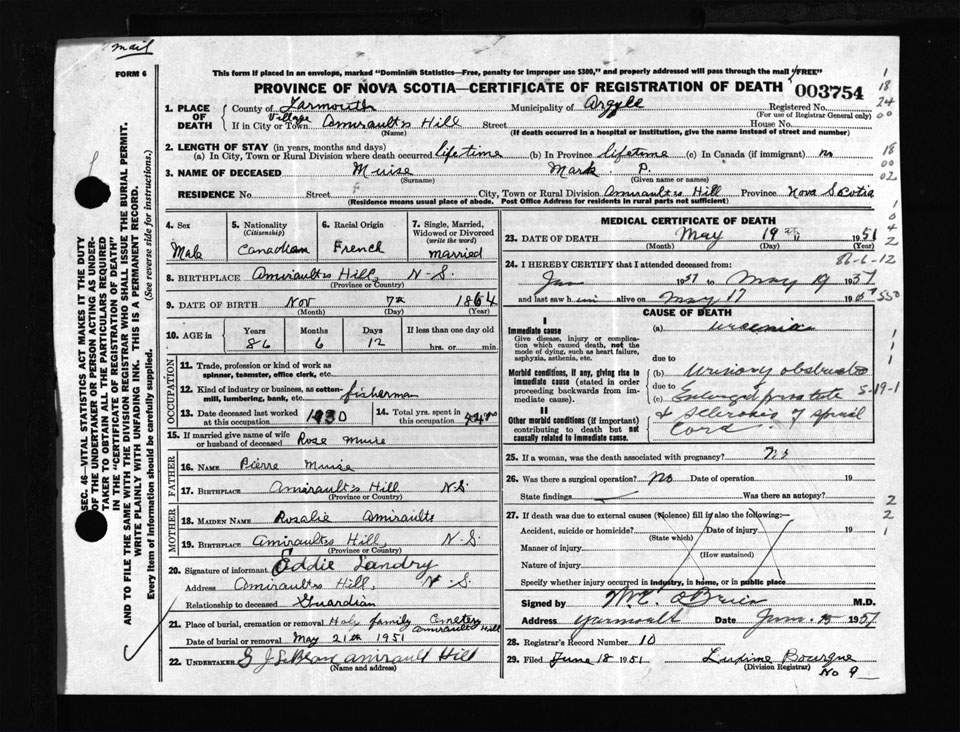 mail
FORM 6
This form if placed in an envelope, marked "Dominion Statistics—Free, penalty for improper use $300," and properly addressed will pass through the mail "FREE"
PROVINCE OF NOVA SCOTIA—CERTIFICATE OF REGISTRATION OF DEATH 003754
1. PLACE OF DEATH County of Yarmouth Municipality of Argyle Registered No.
(For use of Registrar General only)
Village
If in City or Town Amirault's Hill Street House No.
(Name) (If death occurred in a hospital or institution, give the name instead of street and number)
2. LENGTH OF STAY (in years, months and days)
(a) In City, Town or Rural Division where death occurred lifetime (b) In Province lifetime (c) In Canada (if immigrant) no
3. NAME OF DECEASED Muise Mark P.
(Surname) (Given name or names)
RESIDENCE No. Street City, Town or Rural Division Amiraults Hill Province Nova Scotia
(Residence means usual place of abode. Post Office Address for residents in rural parts not sufficient)
4. Sex Male
5. Nationality (Citizenship) Canadian
6. Racial Origin French
7. Single, Married, Widowed or Divorced (write the word) married
8. BIRTHPLACE Amiraults Hill, N-S.
(Province or Country)
9. DATE OF BIRTH Nov 7th 1864
(Month) (Day) (Year)
10. AGE in Years 86 Months 6 Days 12 If less than one day old
hrs. or min.
OCCUPATION
11. Trade, profession or kind of work as spinner, teamster, office clerk, etc.
12. Kind of industry or business, as cotton-mill, lumbering, bank, etc. fisherman
13. Date deceased last worked at this occupation 1930
14. Total yrs. spent in this occupation
15. If married give name of wife or husband of deceased Rose Muise
FATHER
16. NAME Pierre Muise
17. BIRTHPLACE Amiraults Hill N-S.
(Province or Country)
MOTHER
18. MAIDEN NAME Rosalie Amirault
19. BIRTHPLACE Amiraults Hill, N-S.
(Province or Country)
20. Signature of informant Eddie Landry
Address Amiraults Hill, N-S.
Relationship to deceased Guardian
21. Place of burial, cremation or removal Holy family Cemetery Amiraults Hill
Date of burial or removal May 21th 1951
22. UNDERTAKER G J LeBlanc Amirault Hill
(Name and address)
MEDICAL CERTIFICATE OF DEATH
23. DATE OF DEATH May 19th 1951
(Month) (Day) (Year)
24. I HEREBY CERTIFY that I attended deceased from:
Jan 1951 to May 19 1951
and last saw him alive on May 17 1951
CAUSE OF DEATH
I
Immediate cause
Give disease, injury or complication which caused death, not the mode of dying, such as heart failure, asphyxia, asthenia, etc.
(a) uraemia
due to
Morbid conditions, if any, giving rise to immediate cause (stated in order proceeding backwards from immediate cause).
(b) urinary obstruction
due to
(c) Enlarged prostate
II
Other morbid conditions (if important) contributing to death but not causally related to immediate cause.
& sclerosis of spinal cord.
25. If a woman, was the death associated with pregnancy? No
26. Was there a surgical operation? No Date of operation 19
State findings Was there an autopsy?
27. If death was due to external causes (Violence) fill in also the following:—
Accident, suicide or homicide? Date of injury 19
(State which)
Manner of injury
(How sustained)
Nature of injury
Specify whether injury occurred in industry, in home, or in public place
Signed by W.C. O'Brien M.D.
Address Yarmouth Date June 1951
28. Registrar's Record Number 10
29. Filed June 18 1951
(Division Registrar)
No 9
SEC. 46—VITAL STATISTICS ACT MAKES IT THE DUTY
OF THE UNDERTAKER OR PERSON ACTING AS UNDER-
TAKER TO OBTAIN ALL THE PARTICULARS REQUIRED
IN THE "CERTIFICATE OF REGISTRATION OF DEATH"
AND TO FILE THE SAME WITH THE DIVISION REGISTRAR WHO SHALL ISSUE THE BURIAL PERMIT.
WRITE PLAINLY WITH UNFADING INK. THIS IS A PERMANENT RECORD.
Every item of information should be carefully supplied. (See reverse side for instructions.)
86-6-12
550
5-19-1